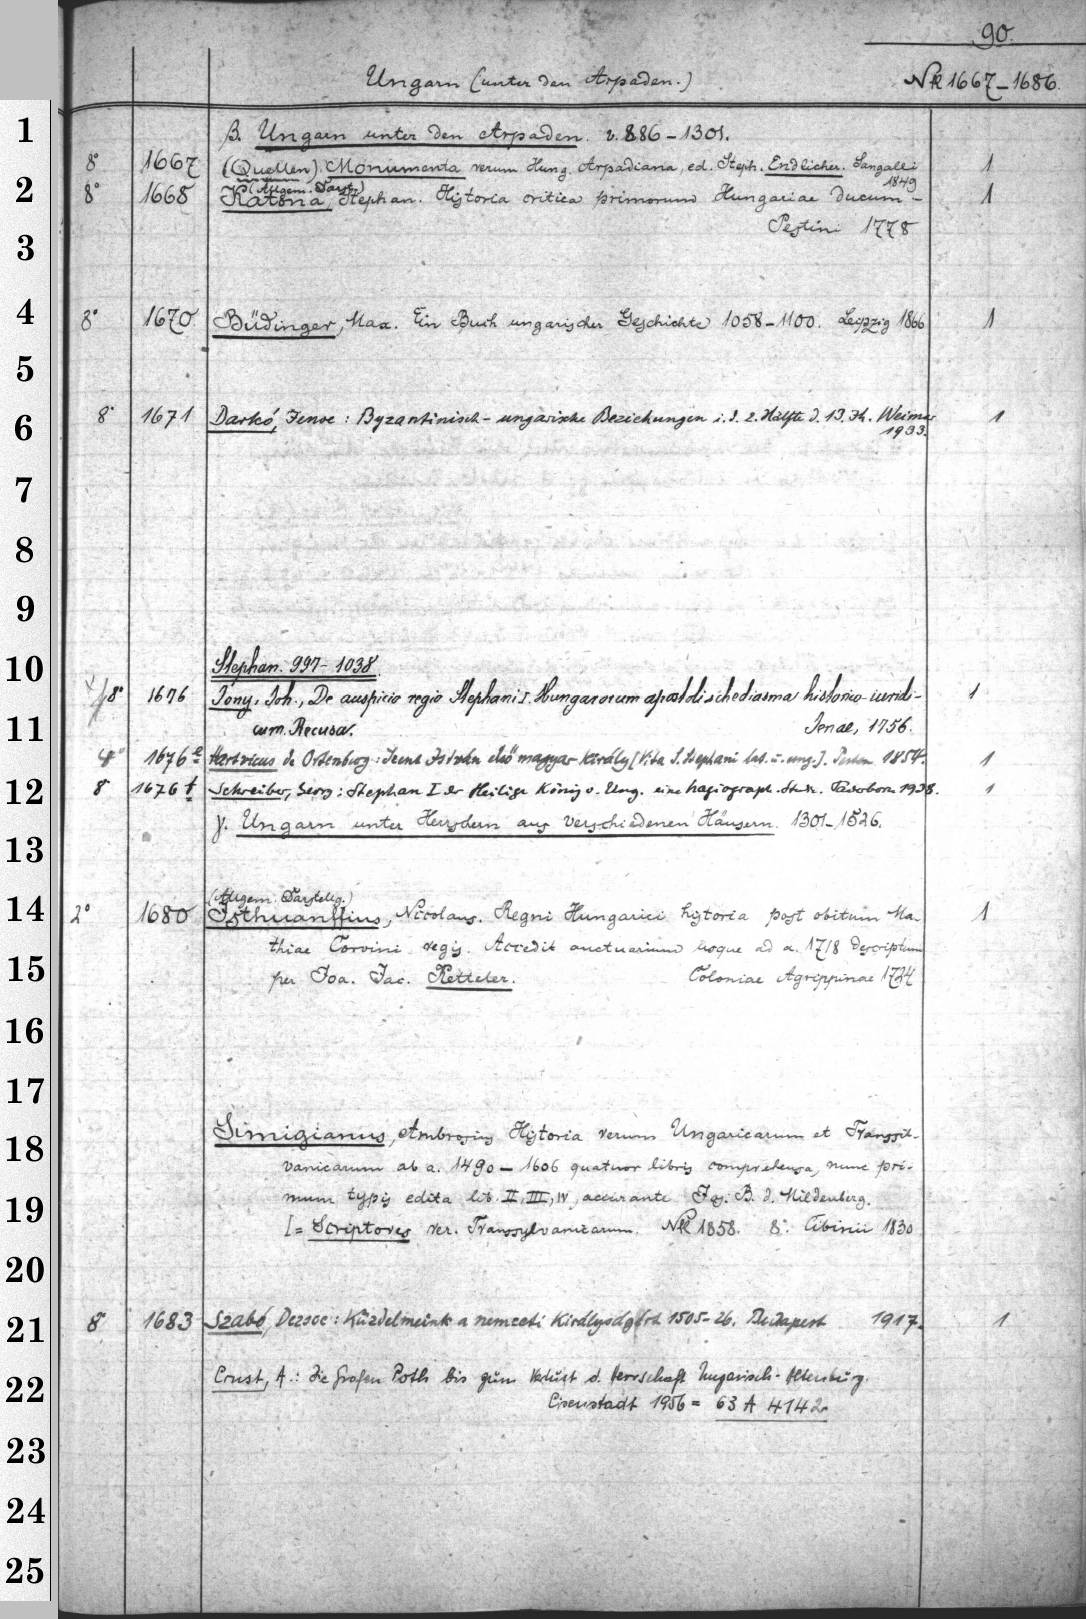 90.
Ungarn (unter den Arpaden.) NR 1667-1686.
1
β. Ungarn unter den Arpaden. v. 886-1301.
8° 1667 (Quellen). Monumenta rerum Hung. Arpadiana, ed. Steph. Endlicher. Sangalli 1
1849
2
(Allgem. Darst.)
8° 1668 Katona, Stephan. Historia critica primorum Hungariae ducum- 1
Pestini 1778
3
4
8° 1670 Büdinger, Max. Ein Buch ungarischer Geschichte 1058-1100. Leipzig 1866 1
5
6
8° 1671 Darkó, Jenoe: Byzantinisch-ungarische Beziehungen i. d. 2. Hälfte d. 13. Jh. Weimar 1
1933.
7
8
9
10
Stephan. 997-1038.
8° 1676 Jony, Joh., De auspicio regio Stephani I. Hungarorum apostoli schediasma historico-iuridi- 1
11
cum. Recusa. Jenae, 1756.
4° 1676e Hartvicus de Ortenburg: Szent István első magyar király [Vita S. Stephani lat. u. ung.]. Pesten 1854. 1
12
8° 1676f Schreiber, Georg: Stephan I der Heilige König v. Ung. eine hagiograph. Stud. Paderborn 1938. 1
γ. Ungarn unter Herrschern aus verschiedenen Häusern. 1301-1526.
13
14
(Allgem. Darstellg.)
2° 1680 Isthuanffius, Nicolaus. Regni Hungarici historia post obitum Ma- 1
thiae Corvini regis. Accedit auctuarium usque ad a. 1718 descriptum
15
per Joa. Jac. Ketteler. Coloniae Agrippinae 1724
16
17
18
Simigianus, Ambrosius Historia rerum Ungaricarum et Transsil-
vanicarum ab a. 1490-1606 quatuor libris comprehensa, nunc pri-
19
mum typis edita lib. II, III, IV, accurante Jos. B. d. Hildenberg.
[= Scriptores rer. Transsylvanicarum. NR 1858. 8°. Cibinii 1830
20
21
8° 1683 Szabó, Dezsoe: Küzdelmeink a nemzeti királyságért 1505-26. Budapest 1917. 1
22
Ernst, A.: Die Grafen Poth bis zum Verlust d. Herrschaft Ungarisch-Altenburg.
Eisenstadt 1956 = 63 A 4142
23
24
25